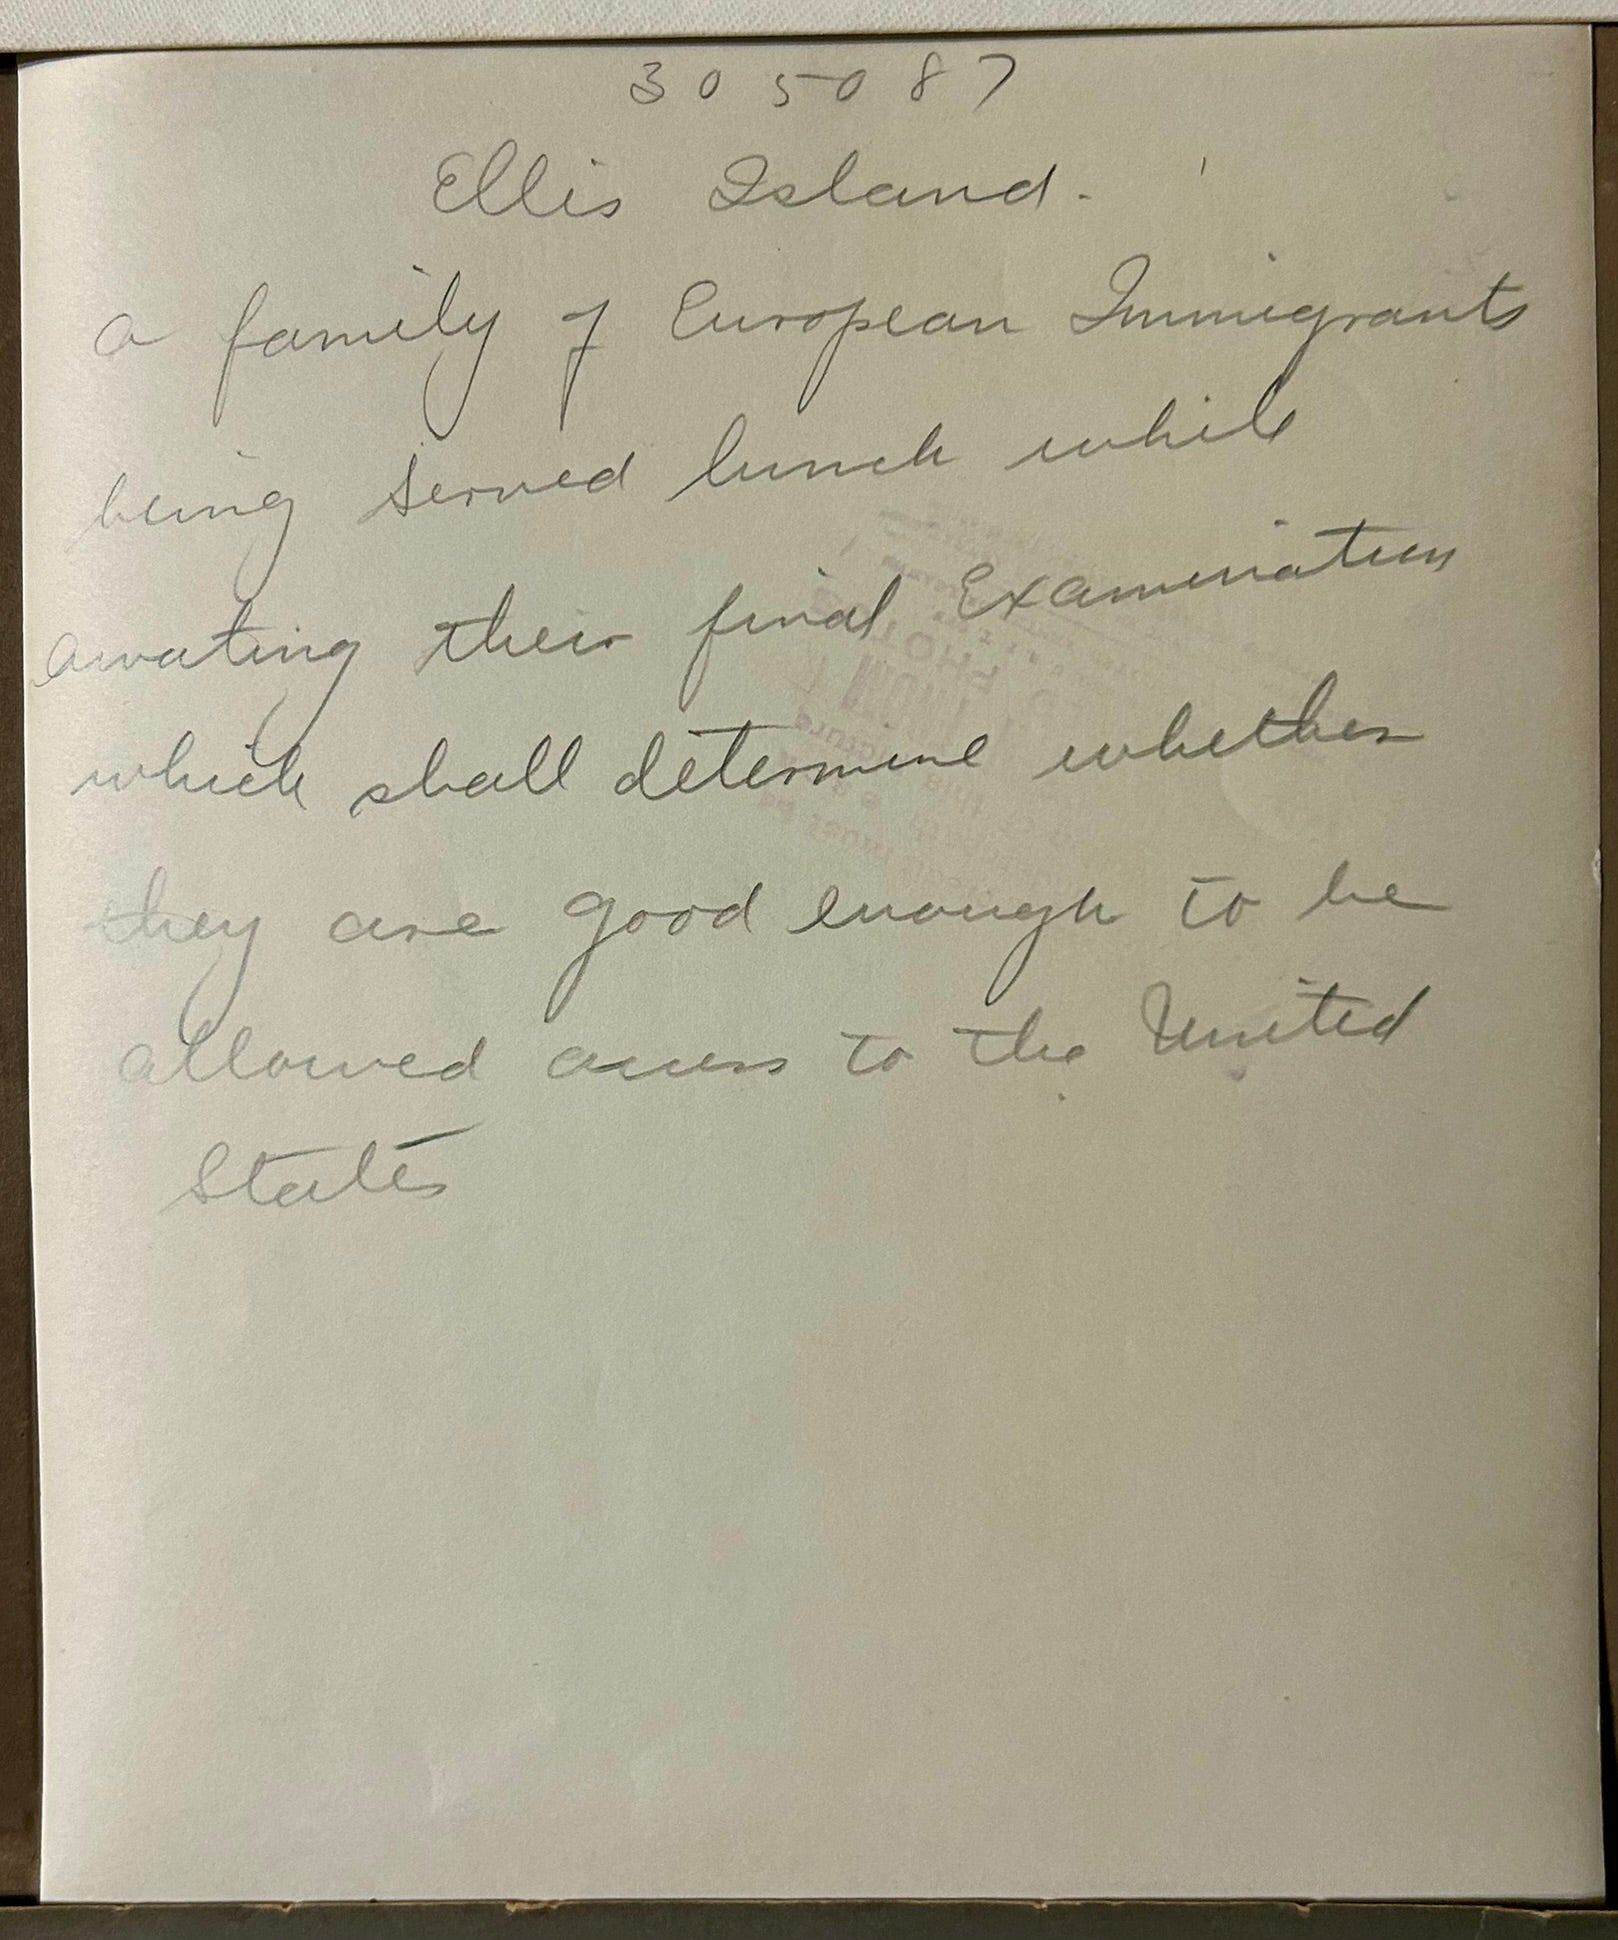 305087
Ellis Island.
a family of European Immigrants
being served lunch while
awating their final Examination
which shall determine whether
they are good enough to be
allowed access to the United
States